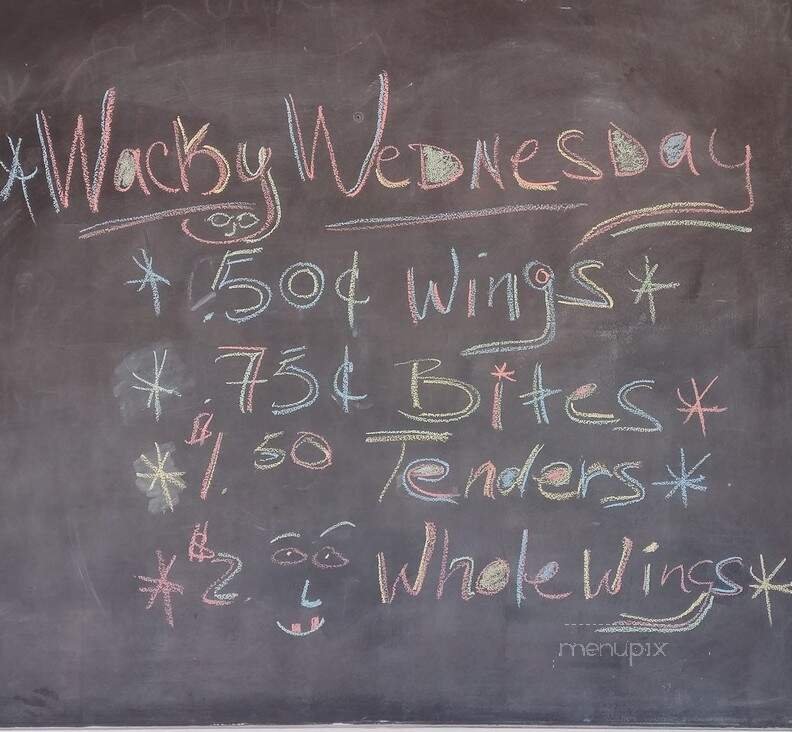 Wacky Wednesday
.50¢ Wings
.75¢ Bites
$1.50 Tenders
$2.00 Whole Wings
menupix